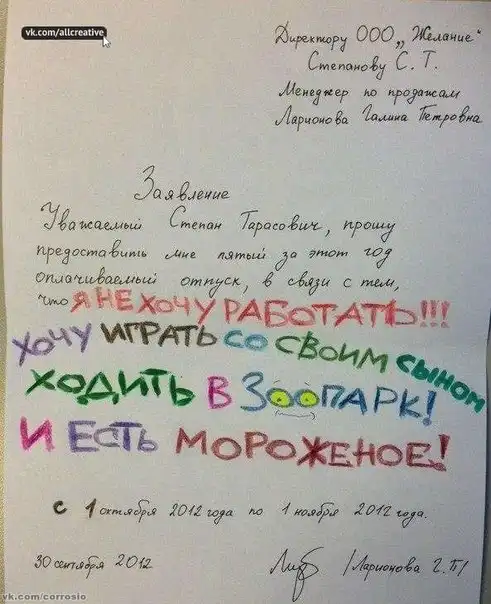 vk.com/allcreative
Директору ООО „Желание"
Степанову С. Т.
Менеджер по продажам
Ларионова Галина Петровна
Заявление
Уважаемый Степан Тарасович, прошу
предоставить мне пятый за этот год
оплачиваемый отпуск, в связи с тем,
что Я НЕ ХОЧУ РАБОТАТЬ!!!
ХОЧУ ИГРАТЬ СО СВОИМ СЫНОМ
ХОДИТЬ В ЗООПАРК!
И ЕСТЬ МОРОЖЕНОЕ!
с 1 октября 2012 года по 1 ноября 2012 года.
30 сентября 2012 /Ларионова Г. П/
vk.com/corrosio